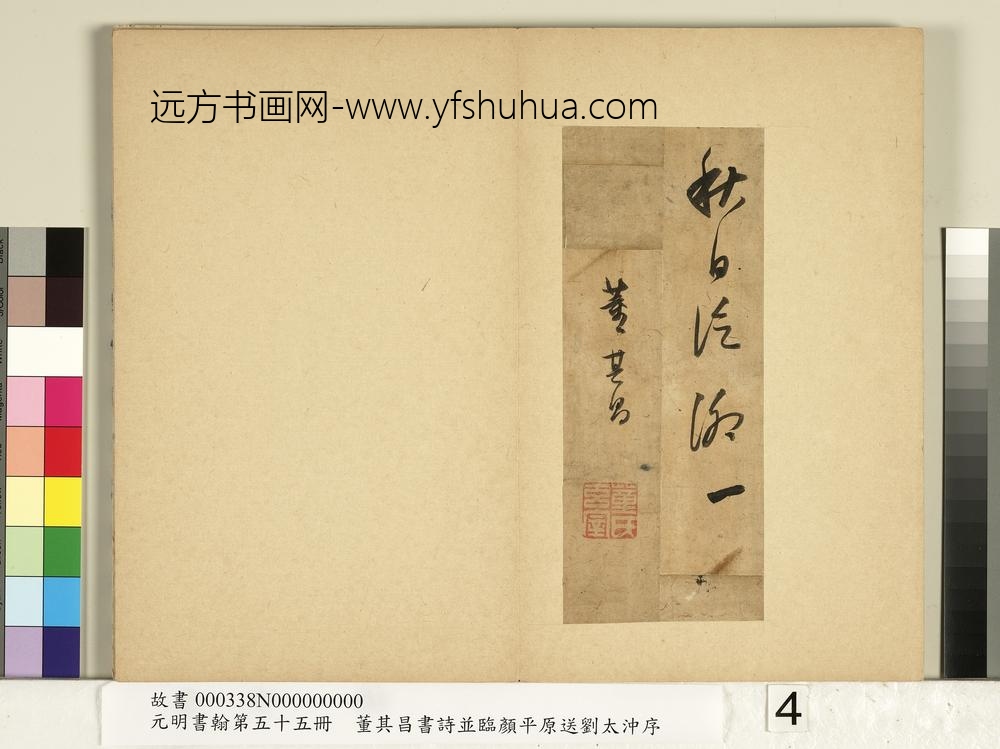 远方书画网-www.yfshuhua.com
秋日泛湖一
董其昌
董氏
Black
3/Color
White
Magenta
故書 000338N000000000
元明書翰第五十五冊 董其昌書詩並臨顏平原送劉太沖序
4